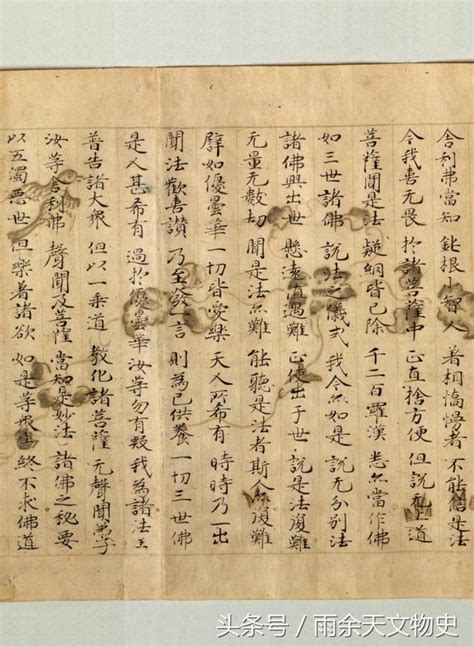 舍利弗當知 鈍根小智人 著相憍慢者 不能信是法
今我喜无畏 於諸菩薩中 正直捨方便 但說无上道
菩薩聞是法 疑網皆已除 千二百羅漢 悉亦當作佛
如三世諸佛 說法之儀式 我今亦如是 說无分別法
諸佛興出世 懸遠值遇難 正使出于世 說是法復難
无量无數劫 聞是法亦難 能聽是法者 斯人亦復難
譬如優曇華 一切皆愛樂 天人所希有 時時乃一出
聞法歡喜讚 乃至發一言 則為已供養 一切三世佛
是人甚希有 過於優曇華 汝等勿有疑 我為諸法王
普告諸大眾 但以一乘道 教化諸菩薩 无聲聞弟子
汝等舍利弗 聲聞及菩薩 當知是妙法 諸佛之秘要
以五濁惡世 但樂著諸欲 如是等眾生 終不求佛道
头条号/雨余天文物史